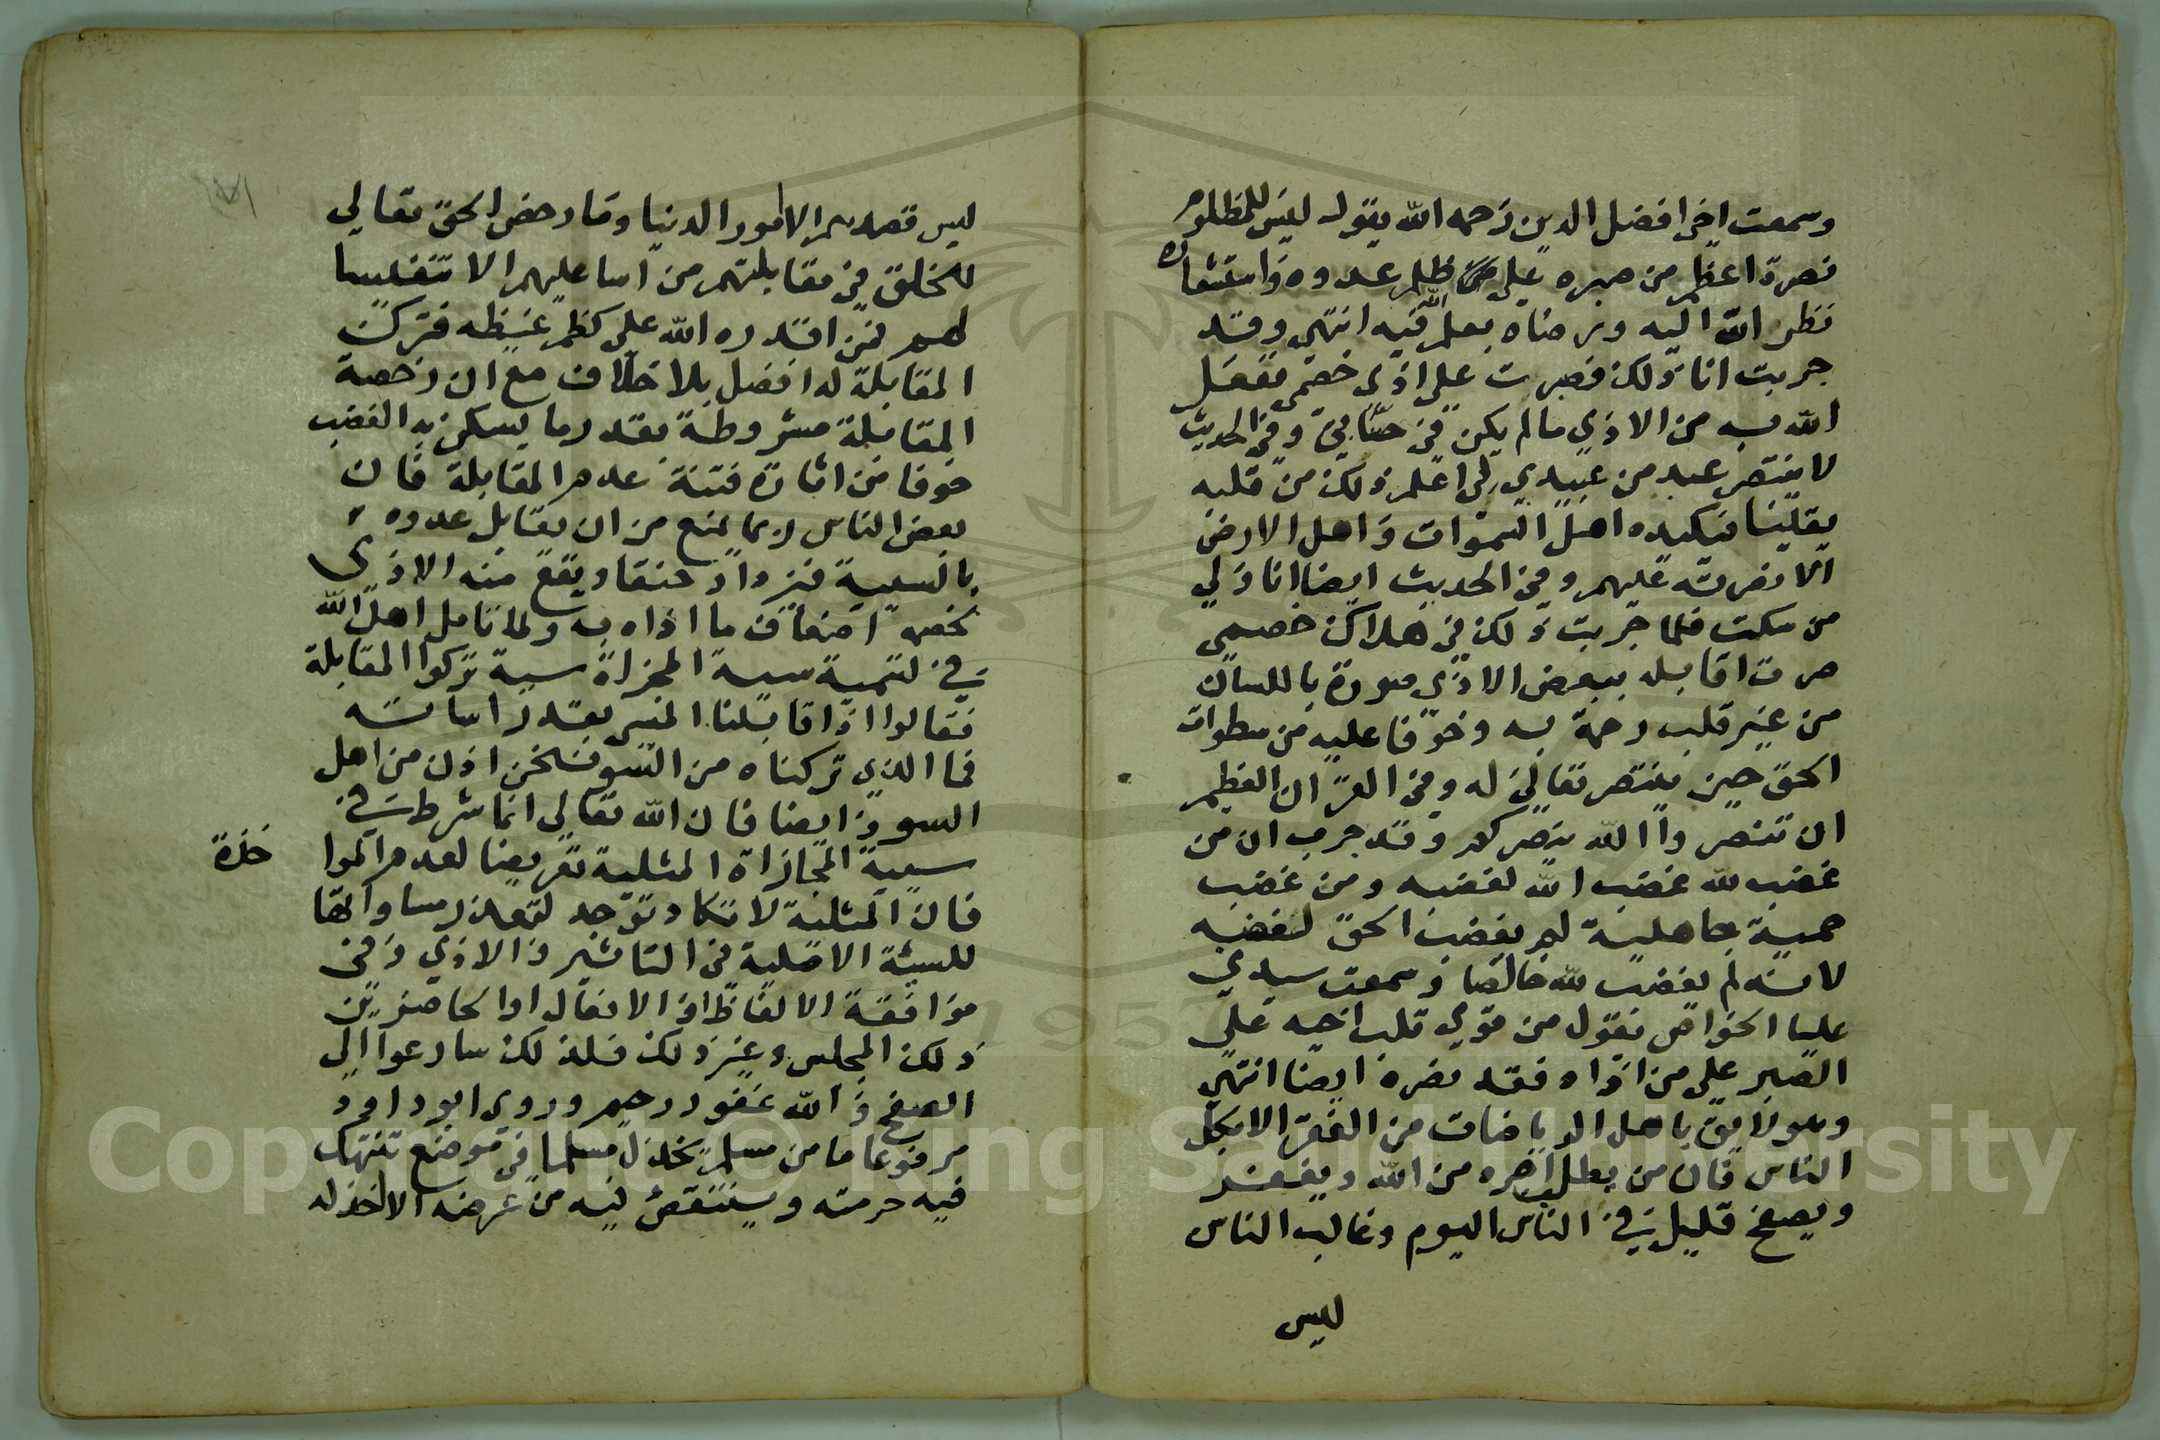 وسمعت اخي افضل الدين رحمه الله يقول ليس للمظلوم
نصرة اعظم من صبره على ظلم عدوه واستشعاره
نظر الله اليه ورضاه بعلم الله فيه انتهى وقد
جربت انا ذلك فصبرت على اذى خصمي ففعل
الله به من الاذى ما لم يكن في حسابي وفي الحديث
لا ينتصر عبد من عبيدي لي اعلم ذلك من قلبه
يقينا فتكيده اهل السموات واهل الارض
الا نصرته عليهم وفي الحديث ايضا انا ولي
من سكت فلما جربت ذلك في هلاك خصمي
صرت اقابله ببعض الاذى صورة باللسان
من غير قلب رحمة به وخوفا عليه من سطوات
الحق حين ينتصر تعالى له وفي القران العظيم
ان تنصروا الله ينصركم وقد جرب ان من
غضب لله غضب الله لغضبه ومن غضب
حمية جاهلية لم يغضب الحق لغضبه
لانه لم يغضب لله خالصا وسمعت سيدي
عليا الخواص يقول من قوى قلب اخيه على
الصبر على من اذاه فقد نصره ايضا انتهى
وهو لايق باهل الرياضات من الفقرا لا بكل
الناس فان من يطلب اجره من الله ويغفر
ويصفح قليل في الناس اليوم وغالب الناس
ليس
ليس قصدهم الا امور الدنيا وما رخص الحق تعالى
للخلق في مقابلتهم من اسا عليهم الا تنفيسا
لهم فمن اقدره الله على كظم غيظه فترك
المقابلة له افضل بلا خلاف مع ان رخصة
المقابلة مشروطة بقدر ما يسكن به الغضب
خوفا من اثارة فتنة عدم المقابلة فان
بعض الناس ربما يمنع من ان يقابل عدوه
بالسيية فيزداد حنقا ويقع منه الاذى
لخصمه اضعاف ما اذاه به ولما تامل اهل الله
في تسمية سيية المجزاة سيية تركوا المقابلة
فقالوا اذا قابلنا المسي بقدر اساته
فما الذي تركناه من السو فنحن اذن من اهل
السو وايضا فان الله تعالى انما شرط في
سيية المجازاة المثلية تعريضا لعدم الموا
خذة
فان المثلية لا تكاد توجد لتعذر مساواتها
للسيئة الاصلية في التاثير والاذى وفي
موافقة الالفاظ او الافعال او الحاضرين
ذلك المجلس وغير ذلك فلذلك سارعوا الى
الصفح والله غفور رحيم وروى ابو داود
مرفوعا ما من مسلم يخذل مسلما في موضع تنتهك
فيه حرمته وينتقص فيه من عرضه الا خذله
Copyright © King Saud University
1957